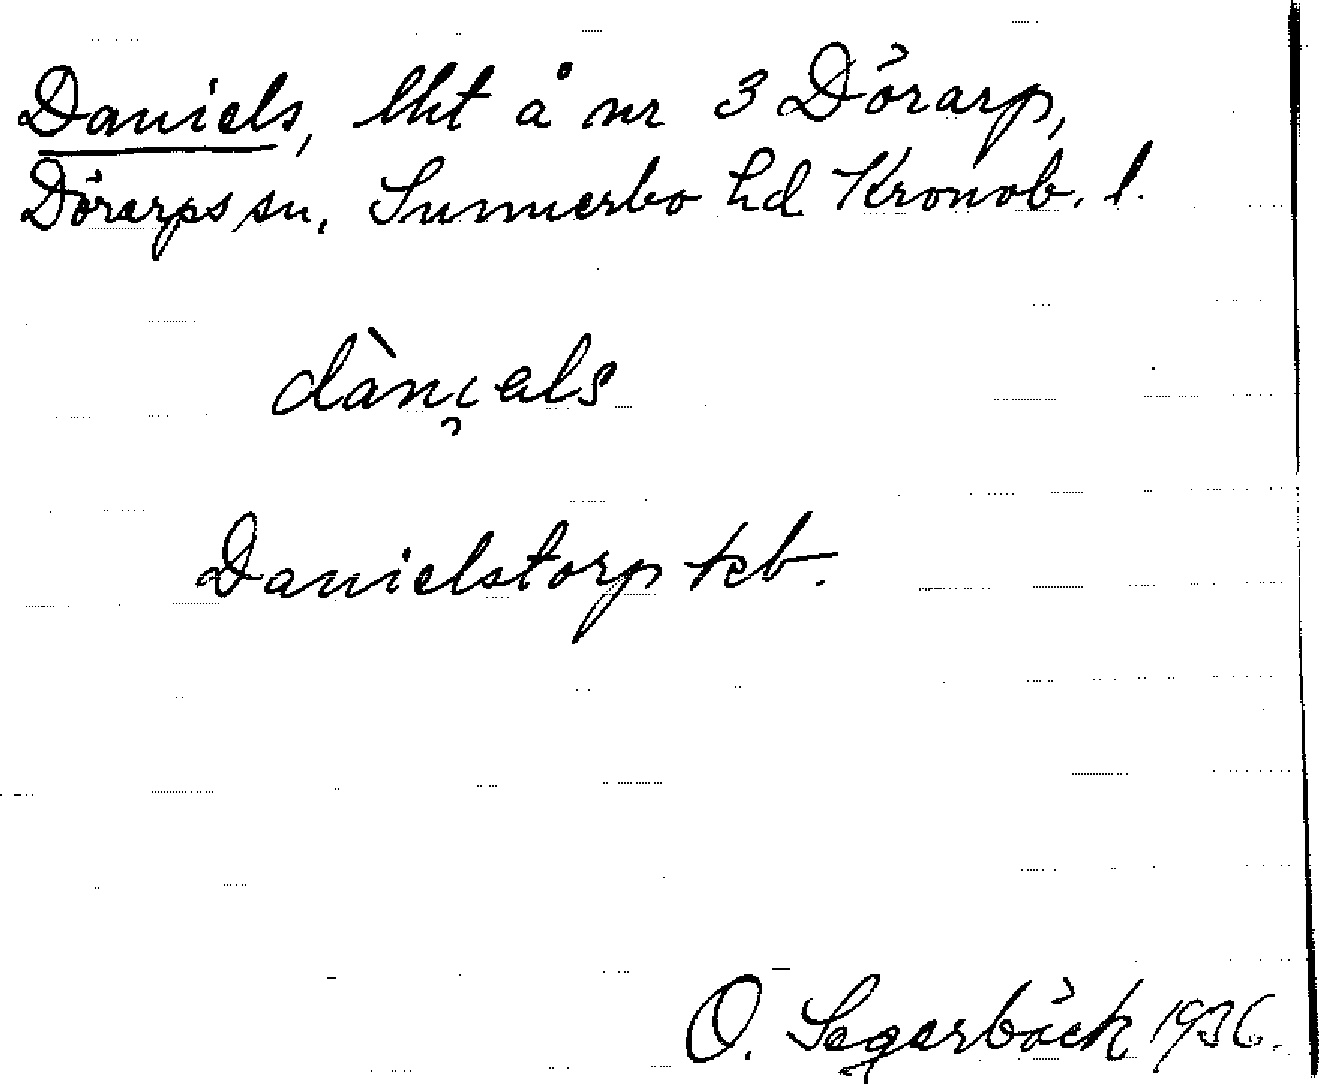 Daniels, lht å nr 3 Dörarp,
Dörarps sn, Sunnerbo hd Kronob. l.
dànı̯als
Danielstorp kb.
O. Segerbäck 1936.